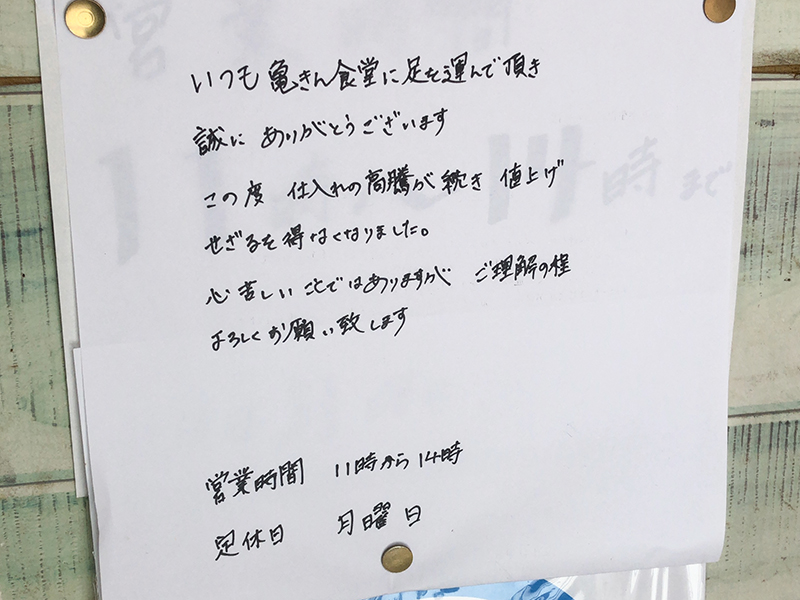 いつも亀きん食堂に足を運んで頂き
誠に ありがとうございます
この度 仕入れの高騰が続き 値上げ
せざるを得なくなりました。
心苦しいことではありますが ご理解の程
よろしくお願い致します
営業時間 11時から14時
定休日 月曜日